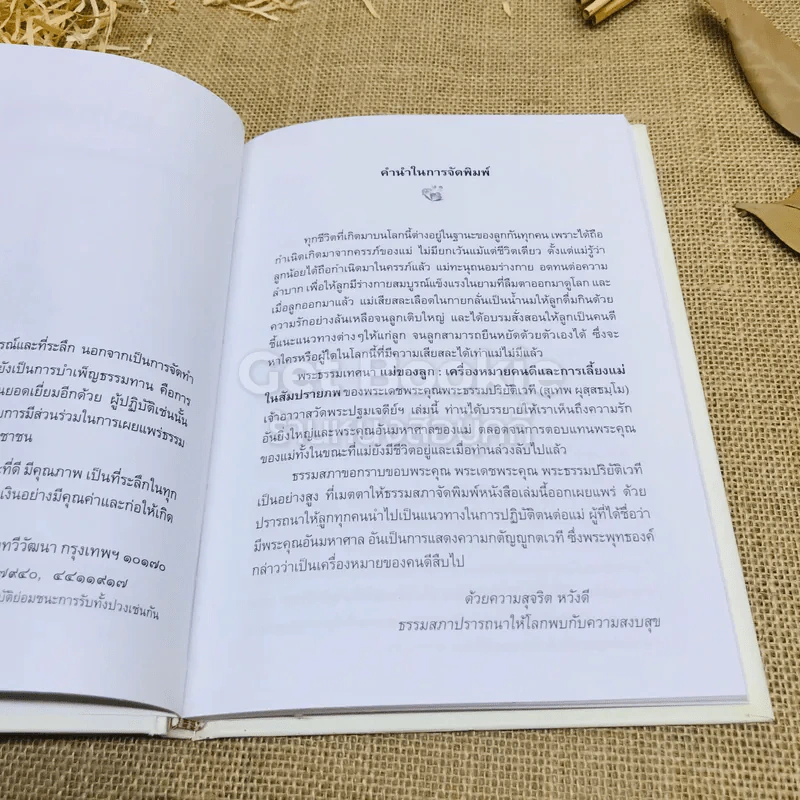 รณ์และที่ระลึก นอกจากเป็นการจัดทำ
ยังเป็นการบำเพ็ญธรรมทาน คือการ
นยอดเยี่ยมอีกด้วย ผู้ปฏิบัติเช่นนั้น
บการมีส่วนร่วมในการเผยแพร่ธรรม
ชาชน
ะที่ดี มีคุณภาพ เป็นที่ระลึกในทุก
เงินอย่างมีคุณค่าและก่อให้เกิด
ทวีวัฒนา กรุงเทพฯ ๑๐๑๗๐
๗๙๔๐, ๔๔๑๑๙๑๗
บัติย่อมชนะการรับทั้งปวงเช่นกัน
คำนำในการจัดพิมพ์
ทุกชีวิตที่เกิดมาบนโลกนี้ต่างอยู่ในฐานะของลูกกันทุกคน เพราะได้ถือ
กำเนิดเกิดมาจากครรภ์ของแม่ ไม่มียกเว้นแม้แต่ชีวิตเดียว ตั้งแต่แม่รู้ว่า
ลูกน้อยได้ถือกำเนิดมาในครรภ์แล้ว แม่ทะนุถนอมร่างกาย อดทนต่อความ
ลำบาก เพื่อให้ลูกมีร่างกายสมบูรณ์แข็งแรงในยามที่ลืมตาออกมาดูโลก และ
เมื่อลูกออกมาแล้ว แม่เสียสละเลือดในกายกลั่นเป็นน้ำนมให้ลูกดื่มกินด้วย
ความรักอย่างล้นเหลือจนลูกเติบใหญ่ และได้อบรมสั่งสอนให้ลูกเป็นคนดี
ชี้แนะแนวทางต่างๆให้แก่ลูก จนลูกสามารถยืนหยัดด้วยตัวเองได้ ซึ่งจะ
หาใครหรือผู้ใดในโลกนี้ที่มีความเสียสละได้เท่าแม่ไม่มีแล้ว
พระธรรมเทศนา แม่ของลูก : เครื่องหมายคนดีและการเลี้ยงแม่
ในสัมปรายภพ ของพระเดชพระคุณพระธรรมปริยัติเวที (สุเทพ ผุสฺสธมฺโม)
เจ้าอาวาสวัดพระปฐมเจดีย์ฯ เล่มนี้ ท่านได้บรรยายให้เราเห็นถึงความรัก
อันยิ่งใหญ่และพระคุณอันมหาศาลของแม่ ตลอดจนการตอบแทนพระคุณ
ของแม่ทั้งในขณะที่แม่ยังมีชีวิตอยู่และเมื่อท่านล่วงลับไปแล้ว
ธรรมสภาขอกราบขอบพระคุณ พระเดชพระคุณ พระธรรมปริยัติเวที
เป็นอย่างสูง ที่เมตตาให้ธรรมสภาจัดพิมพ์หนังสือเล่มนี้ออกเผยแพร่ ด้วย
ปรารถนาให้ลูกทุกคนนำไปเป็นแนวทางในการปฏิบัติตนต่อแม่ ผู้ที่ได้ชื่อว่า
มีพระคุณอันมหาศาล อันเป็นการแสดงความกตัญญูกตเวที ซึ่งพระพุทธองค์
กล่าวว่าเป็นเครื่องหมายของคนดีสืบไป
ด้วยความสุจริต หวังดี
ธรรมสภาปรารถนาให้โลกพบกับความสงบสุข
Get Bookie